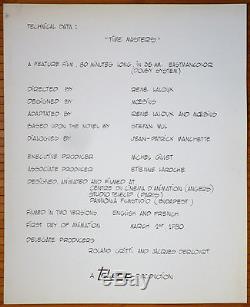 TECHNICAL DATA:
"TIME MASTERS"
A FEATURE FILM, 80 MINUTES LONG, IN 35 MM. EASTMANCOLOR
(DOLBY SYSTEM)
DIRECTED BY RENE LALOUX
DESIGNED BY MŒBIUS
ADAPTATED BY RENE LALOUX AND MŒBIUS
BASED UPON THE NOVEL BY STEFAN WUL
DIALOGUED BY JEAN-PATRICK MANCHETTE
EXECUTIVE PRODUCER MICHEL GILLET
ASSOCIATE PRODUCER ETIENNE LAROCHE
DESIGNED, ANIMATED AND FILMED AT
CENTRE DU CINEMA D'ANIMATION (ANGERS)
STUDIO TELECIP (PARIS)
PANNONIA FILMSTUDIO (BUDAPEST)
FILMED IN TWO VERSIONS ENGLISH AND FRENCH
FIRST DAY OF ANIMATION MARCH 1ST 1980
DELEGATE PRODUCERS
ROLAND GRITTI AND JACQUES DERCOURT
A PRODUCTION